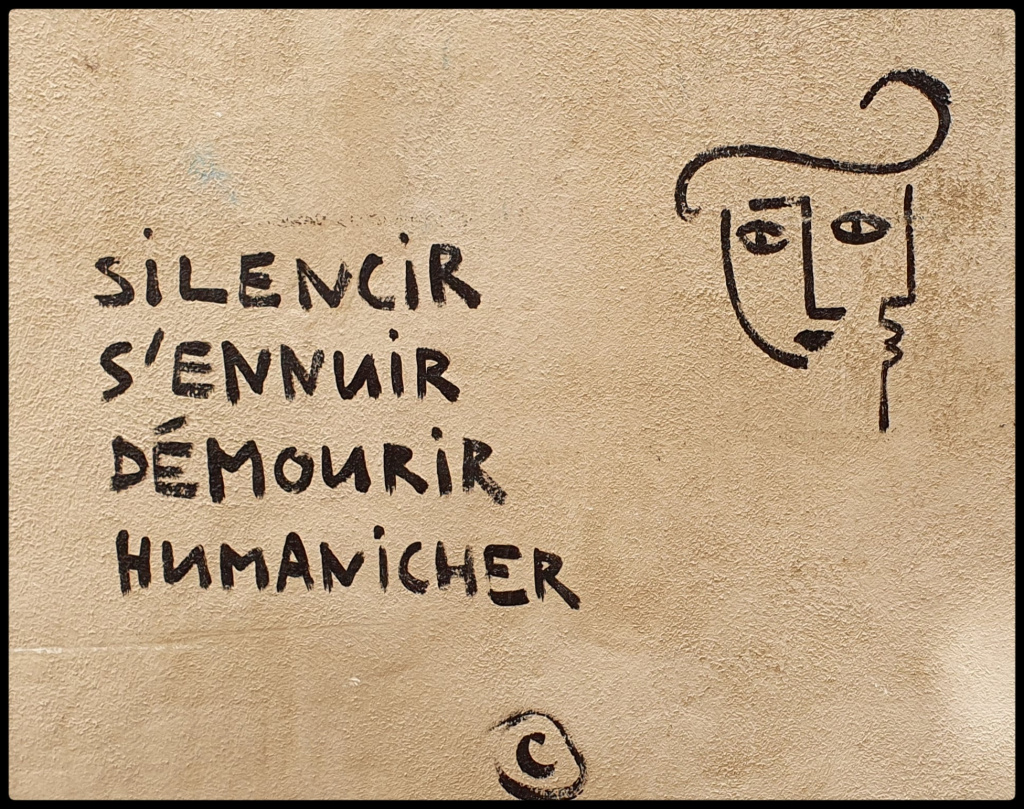 SiLENCiR
S'ENNUiR
DÉMOURiR
HUMANiCHER
©